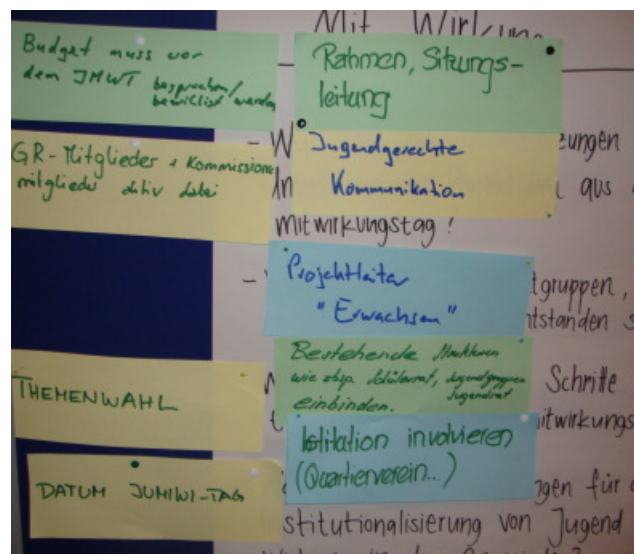 Mit Wirkung
Budget muss vor
dem JMWT besprochen/
bewilligt werden
Rahmen, Sitzungs-
leitung
GR-Mitglieder + Kommissions
mitglieder aktiv dabei
Jugendgerechte
Kommunikation
- W
zungen
aus
mitwirkungstag?
Projektleiter
"Erwachsen"
tgruppen,
ntstanden s
Bestehende Strukturen
wie zbsp. Schülerrat, Jugendgruppen
Jugendrat
einbinden.
Schritte
itwirkungs
THEMENWAHL
Istitution involvieren
(Quartierverein...)
DATUM JUMIWI-TAG
ngen für
stitutionalisierung von Jugend